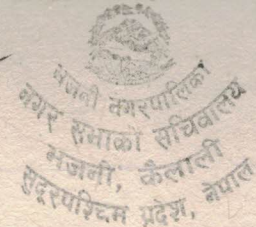 भजनी नगरपालिका
नगर सभाको सचिवालय
भजनी, कैलाली
सुदूरपश्चिम प्रदेश, नेपाल